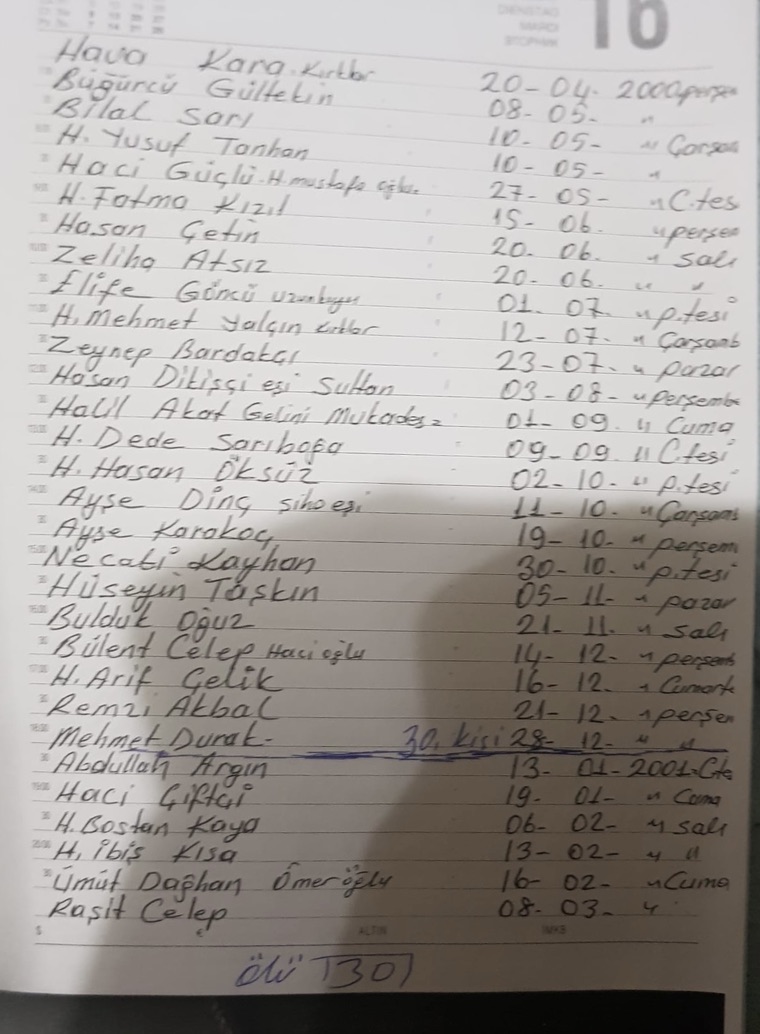 DIENSTAG
MARDI
16
Hava Kara.Kırklar 20-04. 2000 perşen
Büğürcü Gültekin 08-05- "
Bilal Sarı 10-05- " Çarşan
H. Yusuf Tanhan 10-05- "
Haci Güçlü.H.mustafa oğlu. 27-05- " C.tes
H.Fatma Kızıl 15-06. " perşen
Hasan Çetin 20.06. " salı
Zeliha Atsız 20-06. " "
Elife Göncü uzunkuyu 01.07. " p.tesi
H.Mehmet Yalçın Kırklar 12-07. " Çarşamb
Zeynep Bardakçı 23-07- " pazar
Hasan Dikişçi eşi Sultan 03-08- " perşembe
Halil Akat Gelini Mukades= 01-09. " Cuma
H. Dede Sarıboğa 09-09. " C.tesi
H. Hasan Öksüz 02-10- " p.tesi
Ayşe Dinç eşi 11-10. " Çarşam
Ayşe Karakoç 19-10- " perşem
Necati Kayhan 30-10. " p.tesi
Hüseyin Taşkın 05-11- " pazar
Bulduk Oğuz 21-11. " salı
Bülent Celep Haci oğlu 14-12- " perşemb
H. Arif Çelik 16-12. " Cumart
Remzi Akbal 21-12. " perşen
Mehmet Durak- 30. kişi 28-12- " "
Abdullah Argın 13-01-2001.Cte
Haci Çiftçi 19-01- " Cuma
H.Bostan Kaya 06-02- " salı
H. ibiş Kısa 13-02- " "
Ümüt Dağhan Ömer oğlu 16-02- " Cuma
Raşit Celep 08-03- "
ALTIN
ölü 30